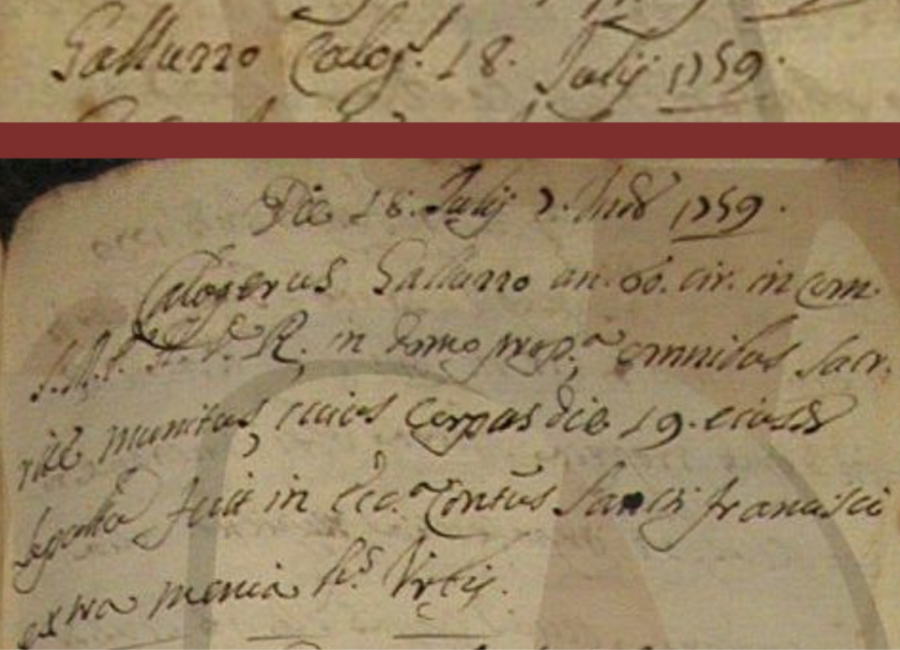 Gallurzo Calog.! 18. Julij 1759.
Die 18. Julij 7. Ind. 1759.
Calogerus Gallurzo an. 60. cir. in Com.
S.M.E. A.D. R. in domo prop.a omnibus Sacr.
rite munitus, cuius corpus die 19. eiusd
Sepultũ fuit in Ecc.a Contus Sancti francisci
extra menia h.s Vrbis.